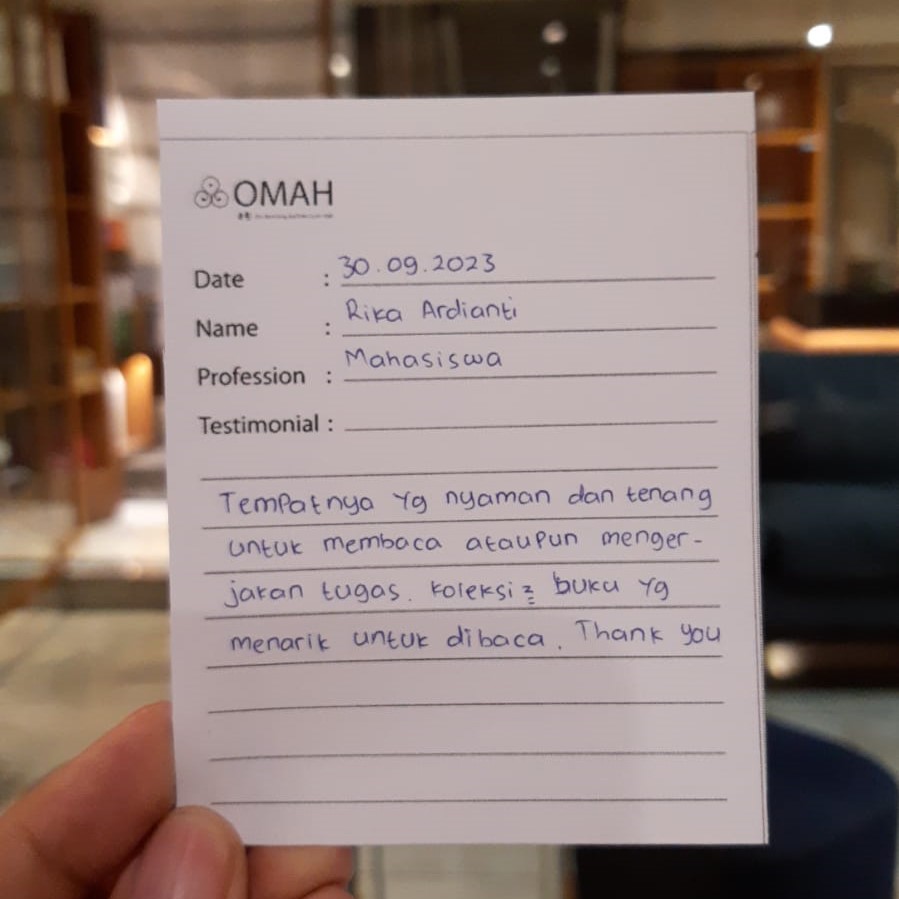 OMAH
Date : 30.09.2023
Name : Rika Ardianti
Profession : Mahasiswa
Testimonial :
Tempatnya yg nyaman dan tenang
untuk membaca ataupun menger-
jakan tugas. Koleksi2 buku yg
menarik untuk dibaca. Thank you